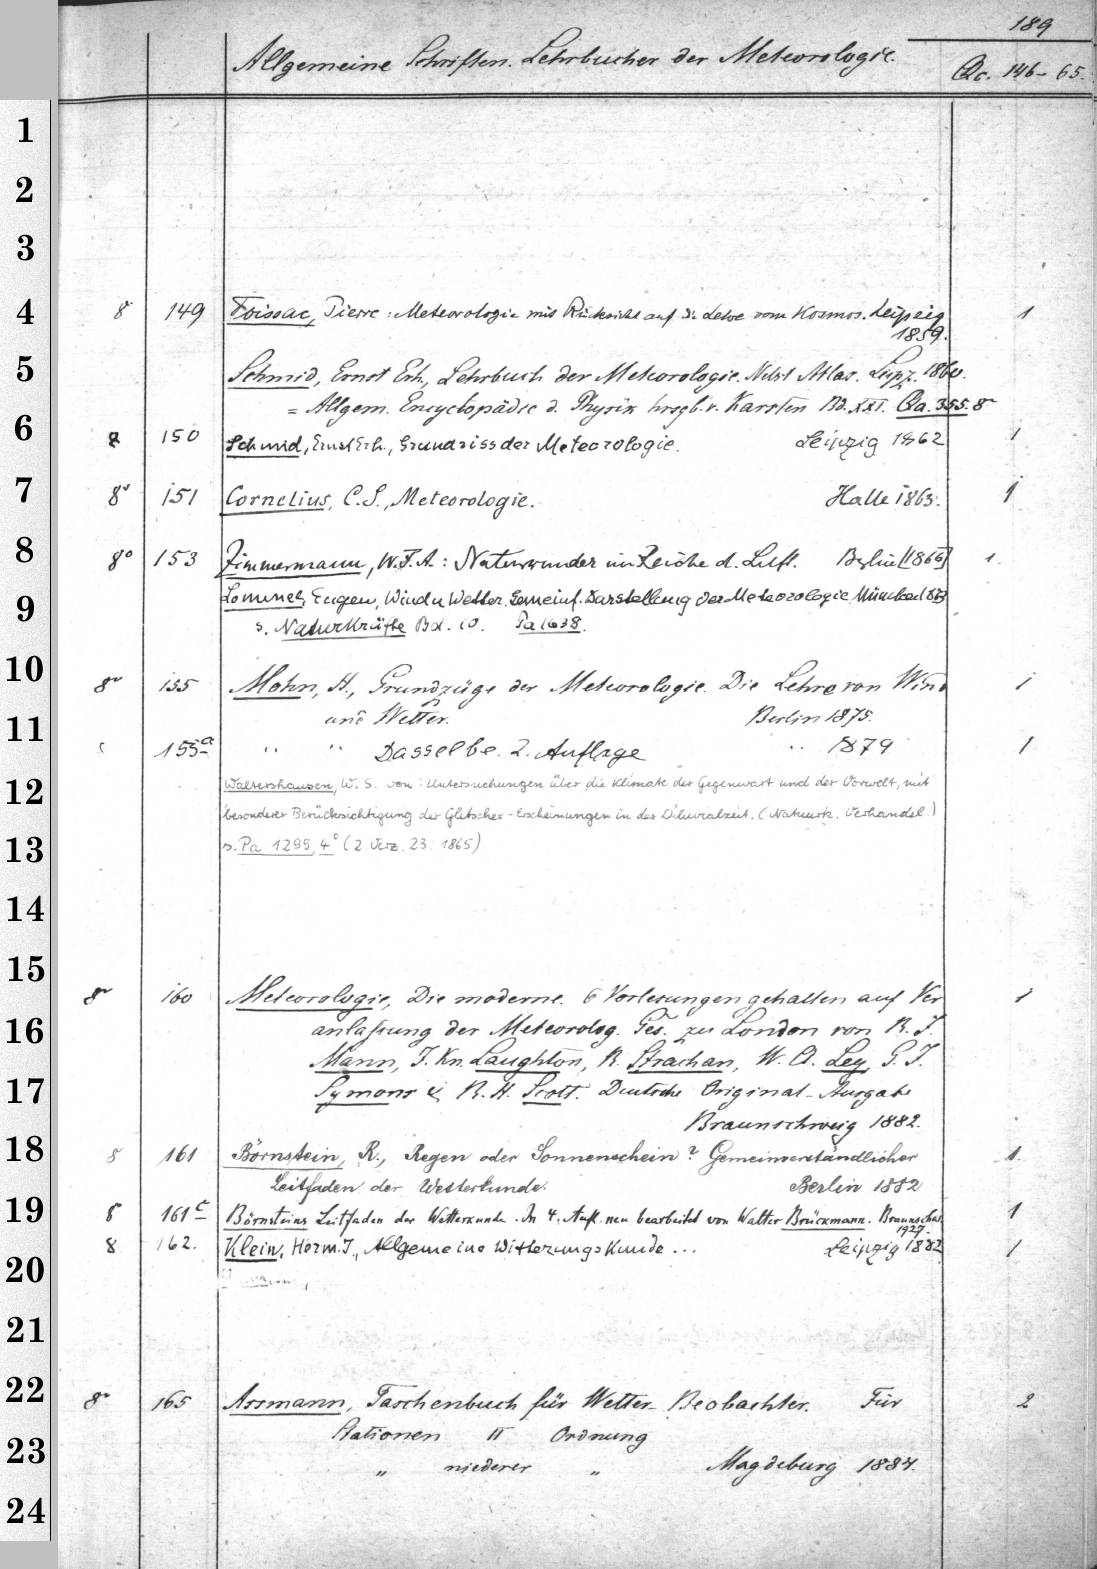 189
Allgemeine Schriften. Lehrbücher der Meteorologie. Qc. 146-65.
1
2
3
4
8 149 Foissac, Pierre: Meteorologie mit Rücksicht auf die Lehre vom Kosmos. Leipzig 1
1859.
5
Schmid, Ernst Erh., Lehrbuch der Meteorologie. Nebst Atlas. Lpz. 1860.
= Allgem. Encyclopädie d. Physik hrsgb. v. Karsten Bd. XXI. Qa. 355. 8º
6
8 150 Schmid, Ernst Erh., Grundriss der Meteorologie. Leipzig 1862 1
7
8º 151 Cornelius, C. S., Meteorologie. Halle 1863. 1
8
8º 153 Zimmermann, W. F. A.: Naturwunder im Reiche d. Luft. Berlin [1866] 1.
9
Lommel, Eugen, Wind u Wetter. Gemeinf. Darstellung der Meteorologie. München 1873
s. Naturkräfte Bd. 10. Pa 1638.
10
8º 155 Mohn, H., Grundzüge der Meteorologie. Die Lehre von Wind 1
und Wetter. Berlin 1875.
11
155a " " Dasselbe. 2. Auflage " 1879 1
12
Waltershausen, W. S. von: Untersuchungen über die Klimate der Gegenwart und der Vorwelt, mit
besonderer Berücksichtigung der Gletscher-Erscheinungen in der Diluvialzeit. (Natuurk. Verhandel.)
13
s. Pa 1295, 4º (2. Verz. 23. 1865)
14
15
8º 160 Meteorologie, Die moderne. 6 Vorlesungen gehalten auf Ver 1
16
anlaßung der Meteorolog. Ges. zu London von R. J.
Mann, J. Kn. Laughton, R. Strachan, W. Cl. Ley, G. J.
17
Symons & R. H. Scott. Deutsche Original-Ausgabe
Braunschweig 1882.
18
8 161 Börnstein, R., Regen oder Sonnenschein? Gemeinverständlicher 1.
Leitfaden der Wetterkunde. Berlin 1882
19
8 161c Börnsteins Leitfaden der Wetterkunde. In 4. Aufl. neu bearbeitet von Walter Brückmann. Braunschw. 1
1927.
8 162. Klein, Herm. J., Allgemeine Witterungskunde ... Leipzig 1882 1
20
21
22
8º 165 Assmann, Taschenbuch für Wetter-Beobachter. Für 2
Stationen II Ordnung
23
" niederer " Magdeburg 1884.
24